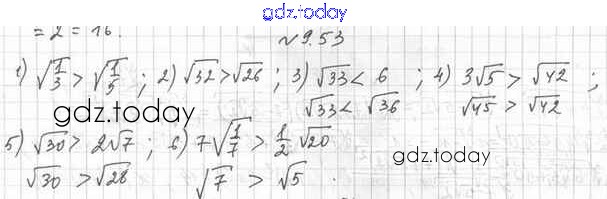 gdz.today
= 2 = 16.
№ 9.53
1) √(1/3) > √(1/5) ; 2) √32 > √26 ; 3) √33 < 6 ; 4) 3√5 > √42 ;
√33 < √36 √45 > √42
gdz.today
5) √30 > 2√7 ; 6) 7√(1/7) > 1/2 √20
gdz.today
√30 > √28 √7 > √5 .